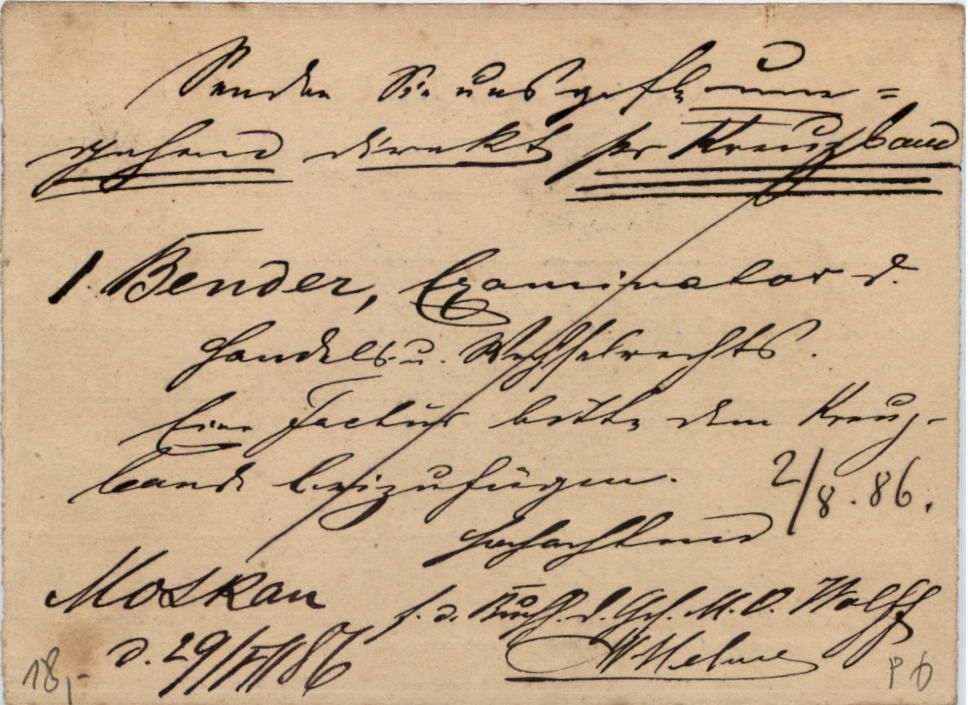 Senden Sie uns gefl. umge=
gehend direkt per Kreuzband
1. Bender, Examinator d.
Handels u. Wechselrechts.
Eine Factur bitte dem Kreuz-
bande beizufügen.
2/8. 86.
Hochachtend
Moskau
f. d. Buchh. d. Ges. M. O. Wolff
d. 29/VII 86
18,-
P 6